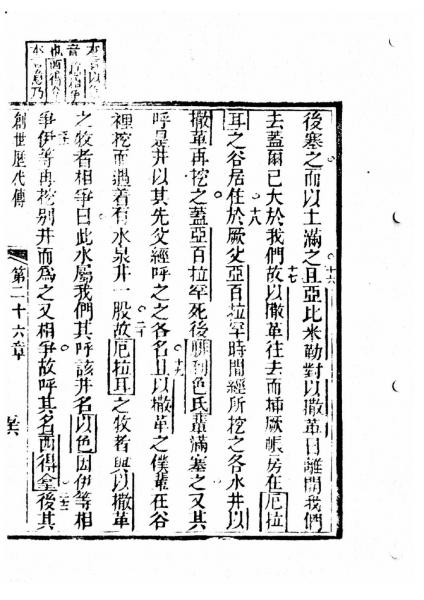 後塞之而以土滿之且亞比米勒對以撒革曰離開我們
去蓋爾已大於我們故以撒革往去而插厥帳房在厄拉
耳之谷居住於厥父亞百拉罕時間經所挖之各水井以
撒革再挖之蓋亞百拉罕死後腓利色氏輩滿塞之又其
呼是井以其先父經呼之之各名且以撒革之僕輩在谷
裡挖而遇着有水泉井一股故厄拉耳之牧者與以撒革
之牧者相爭曰此水屬我們其呼該井名以色因伊等相
爭伊等再挖別井而為之又相爭故呼其名西得拿後其
創世歷代傳 第二十六章
十六
十七
十八
十九
二十